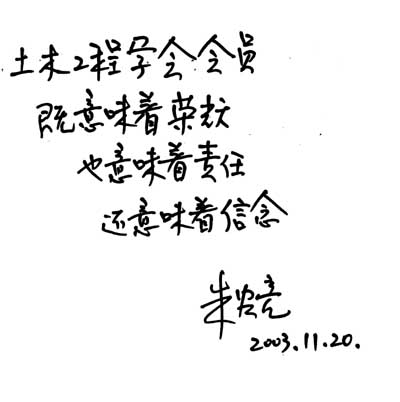 土木工程学会会员
既意味着荣光
也意味着责任
还意味着信念
朱宏亮
2003.11.20.